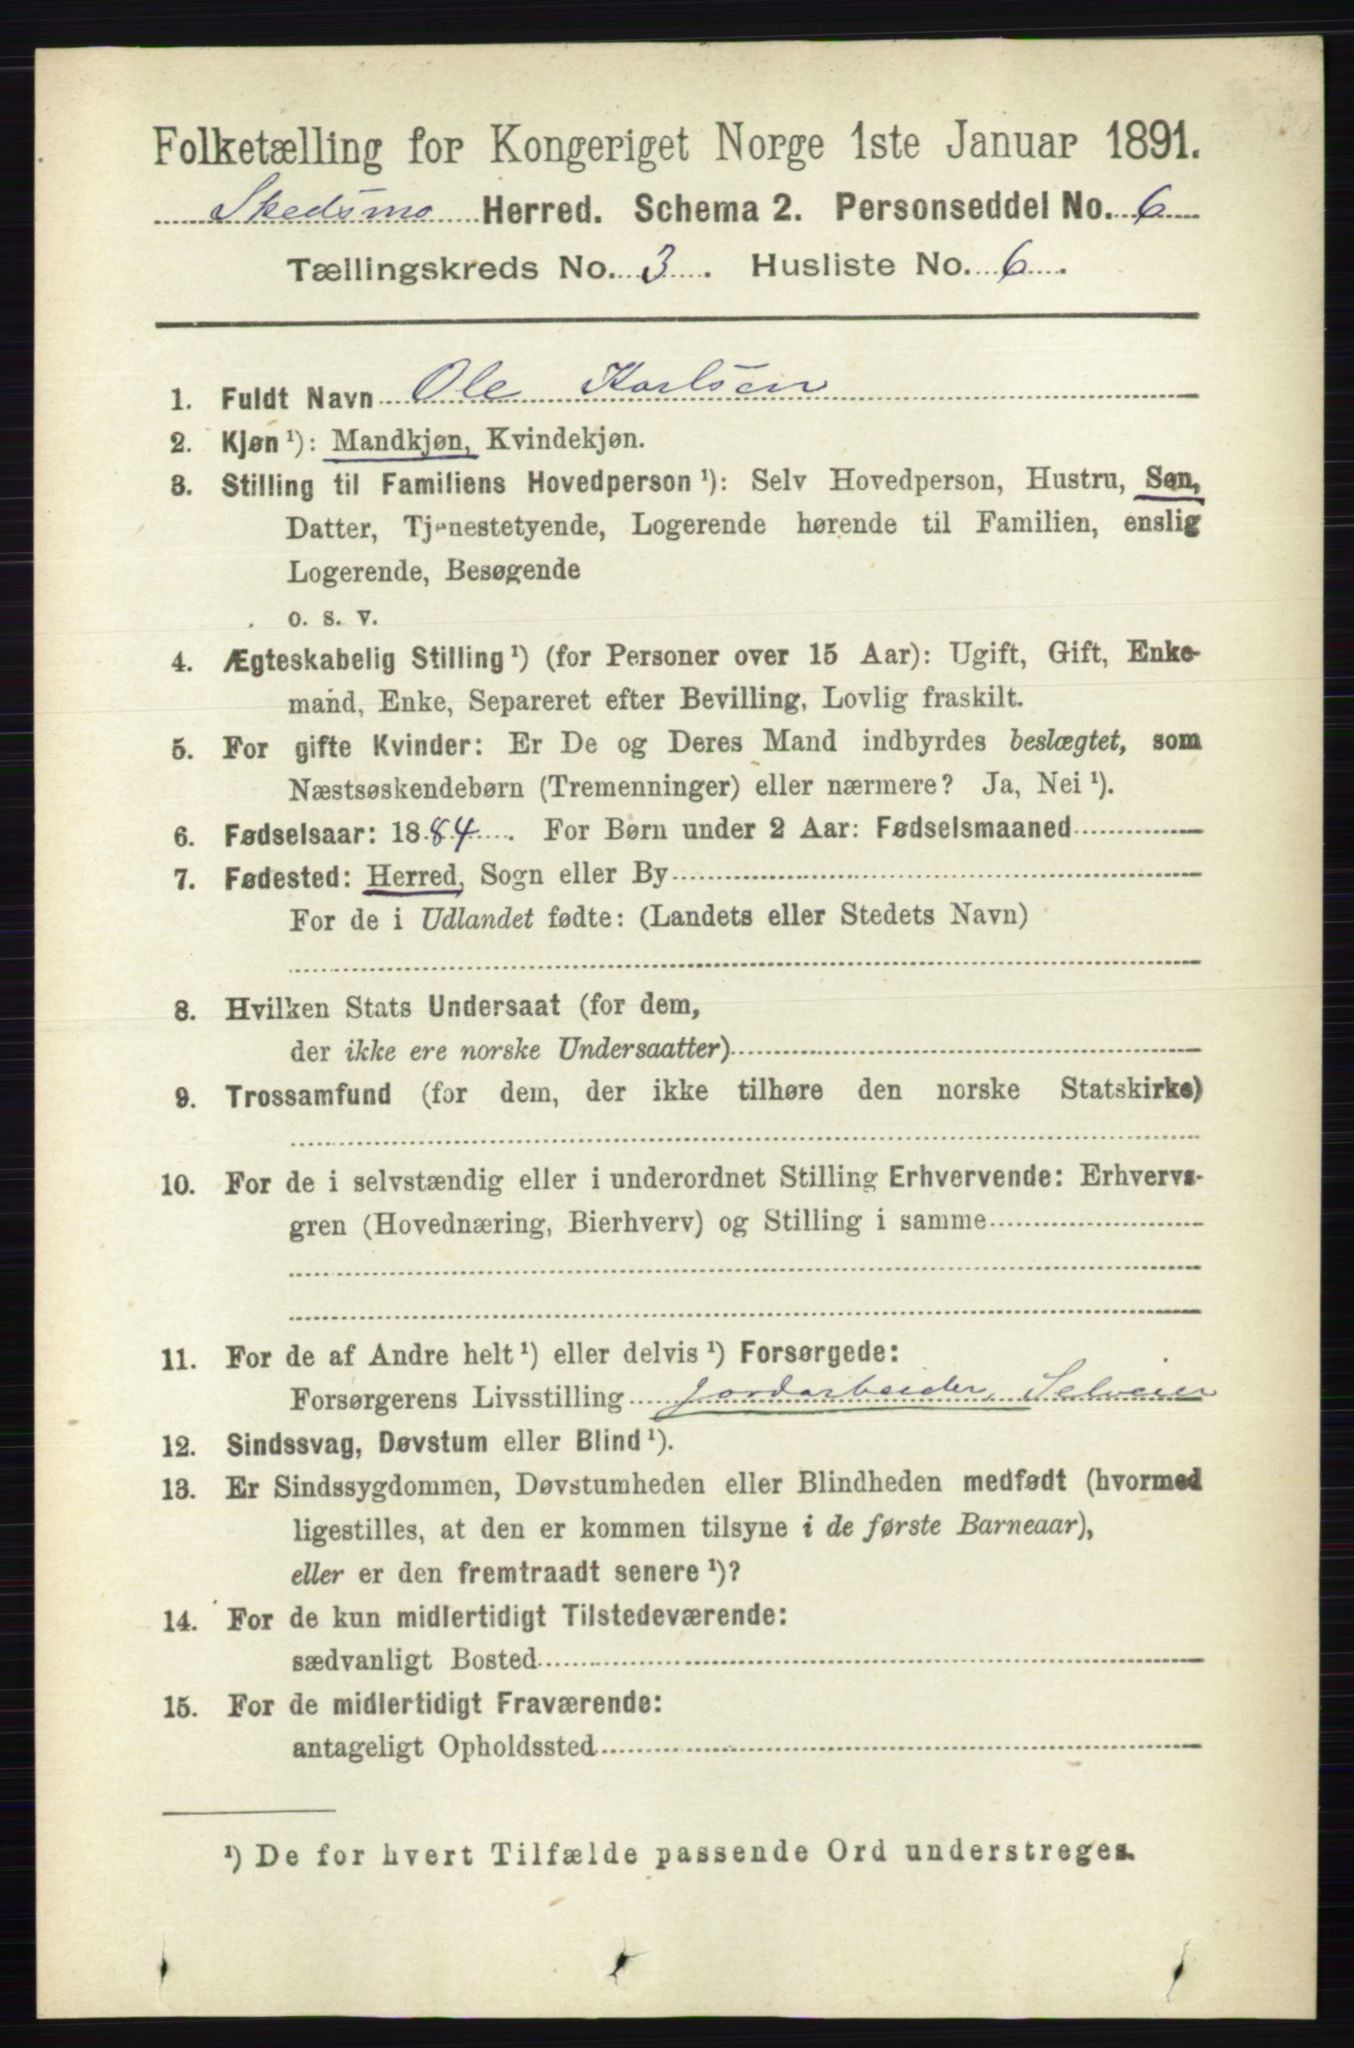 Folketælling for Kongeriget Norge 1ste Januar 1891.
Skedsmo Herred. Schema 2. Personseddel No. 6
Tællingskreds No. 3. Husliste No. 6.
1. Fuldt Navn Ole Karlsen
2. Kjøn ¹): Mandkjøn, Kvindekjøn.
3. Stilling til Familiens Hovedperson ¹): Selv Hovedperson, Hustru, Søn,
Datter, Tjenestetyende, Logerende hørende til Familien, enslig
Logerende, Besøgende
o. s. v.
4. Ægteskabelig Stilling ¹) (for Personer over 15 Aar): Ugift, Gift, Enke-
mand, Enke, Separeret efter Bevilling, Lovlig fraskilt.
5. For gifte Kvinder: Er De og Deres Mand indbyrdes beslægtet, som
Næstsøskendebørn (Tremenninger) eller nærmere? Ja, Nei ¹).
6. Fødselsaar: 1884. For Børn under 2 Aar: Fødselsmaaned
7. Fødested: Herred, Sogn eller By
For de i Udlandet fødte: (Landets eller Stedets Navn)
8. Hvilken Stats Undersaat (for dem,
der ikke ere norske Undersaatter)
9. Trossamfund (for dem, der ikke tilhøre den norske Statskirke)
10. For de i selvstændig eller i underordnet Stilling Erhvervende: Erhvervs-
gren (Hovednæring, Bierhverv) og Stilling i samme
11. For de af Andre helt ¹) eller delvis ¹) Forsørgede:
Forsørgerens Livsstilling Jordarbeider, Selveier
12. Sindssvag, Døvstum eller Blind ¹).
13. Er Sindssygdommen, Døvstumheden eller Blindheden medfødt (hvormed
ligestilles, at den er kommen tilsyne i de første Barneaar),
eller er den fremtraadt senere ¹)?
14. For de kun midlertidigt Tilstedeværende:
sædvanligt Bosted
15. For de midlertidigt Fraværende:
antageligt Opholdssted
¹) De for hvert Tilfælde passende Ord understreges.